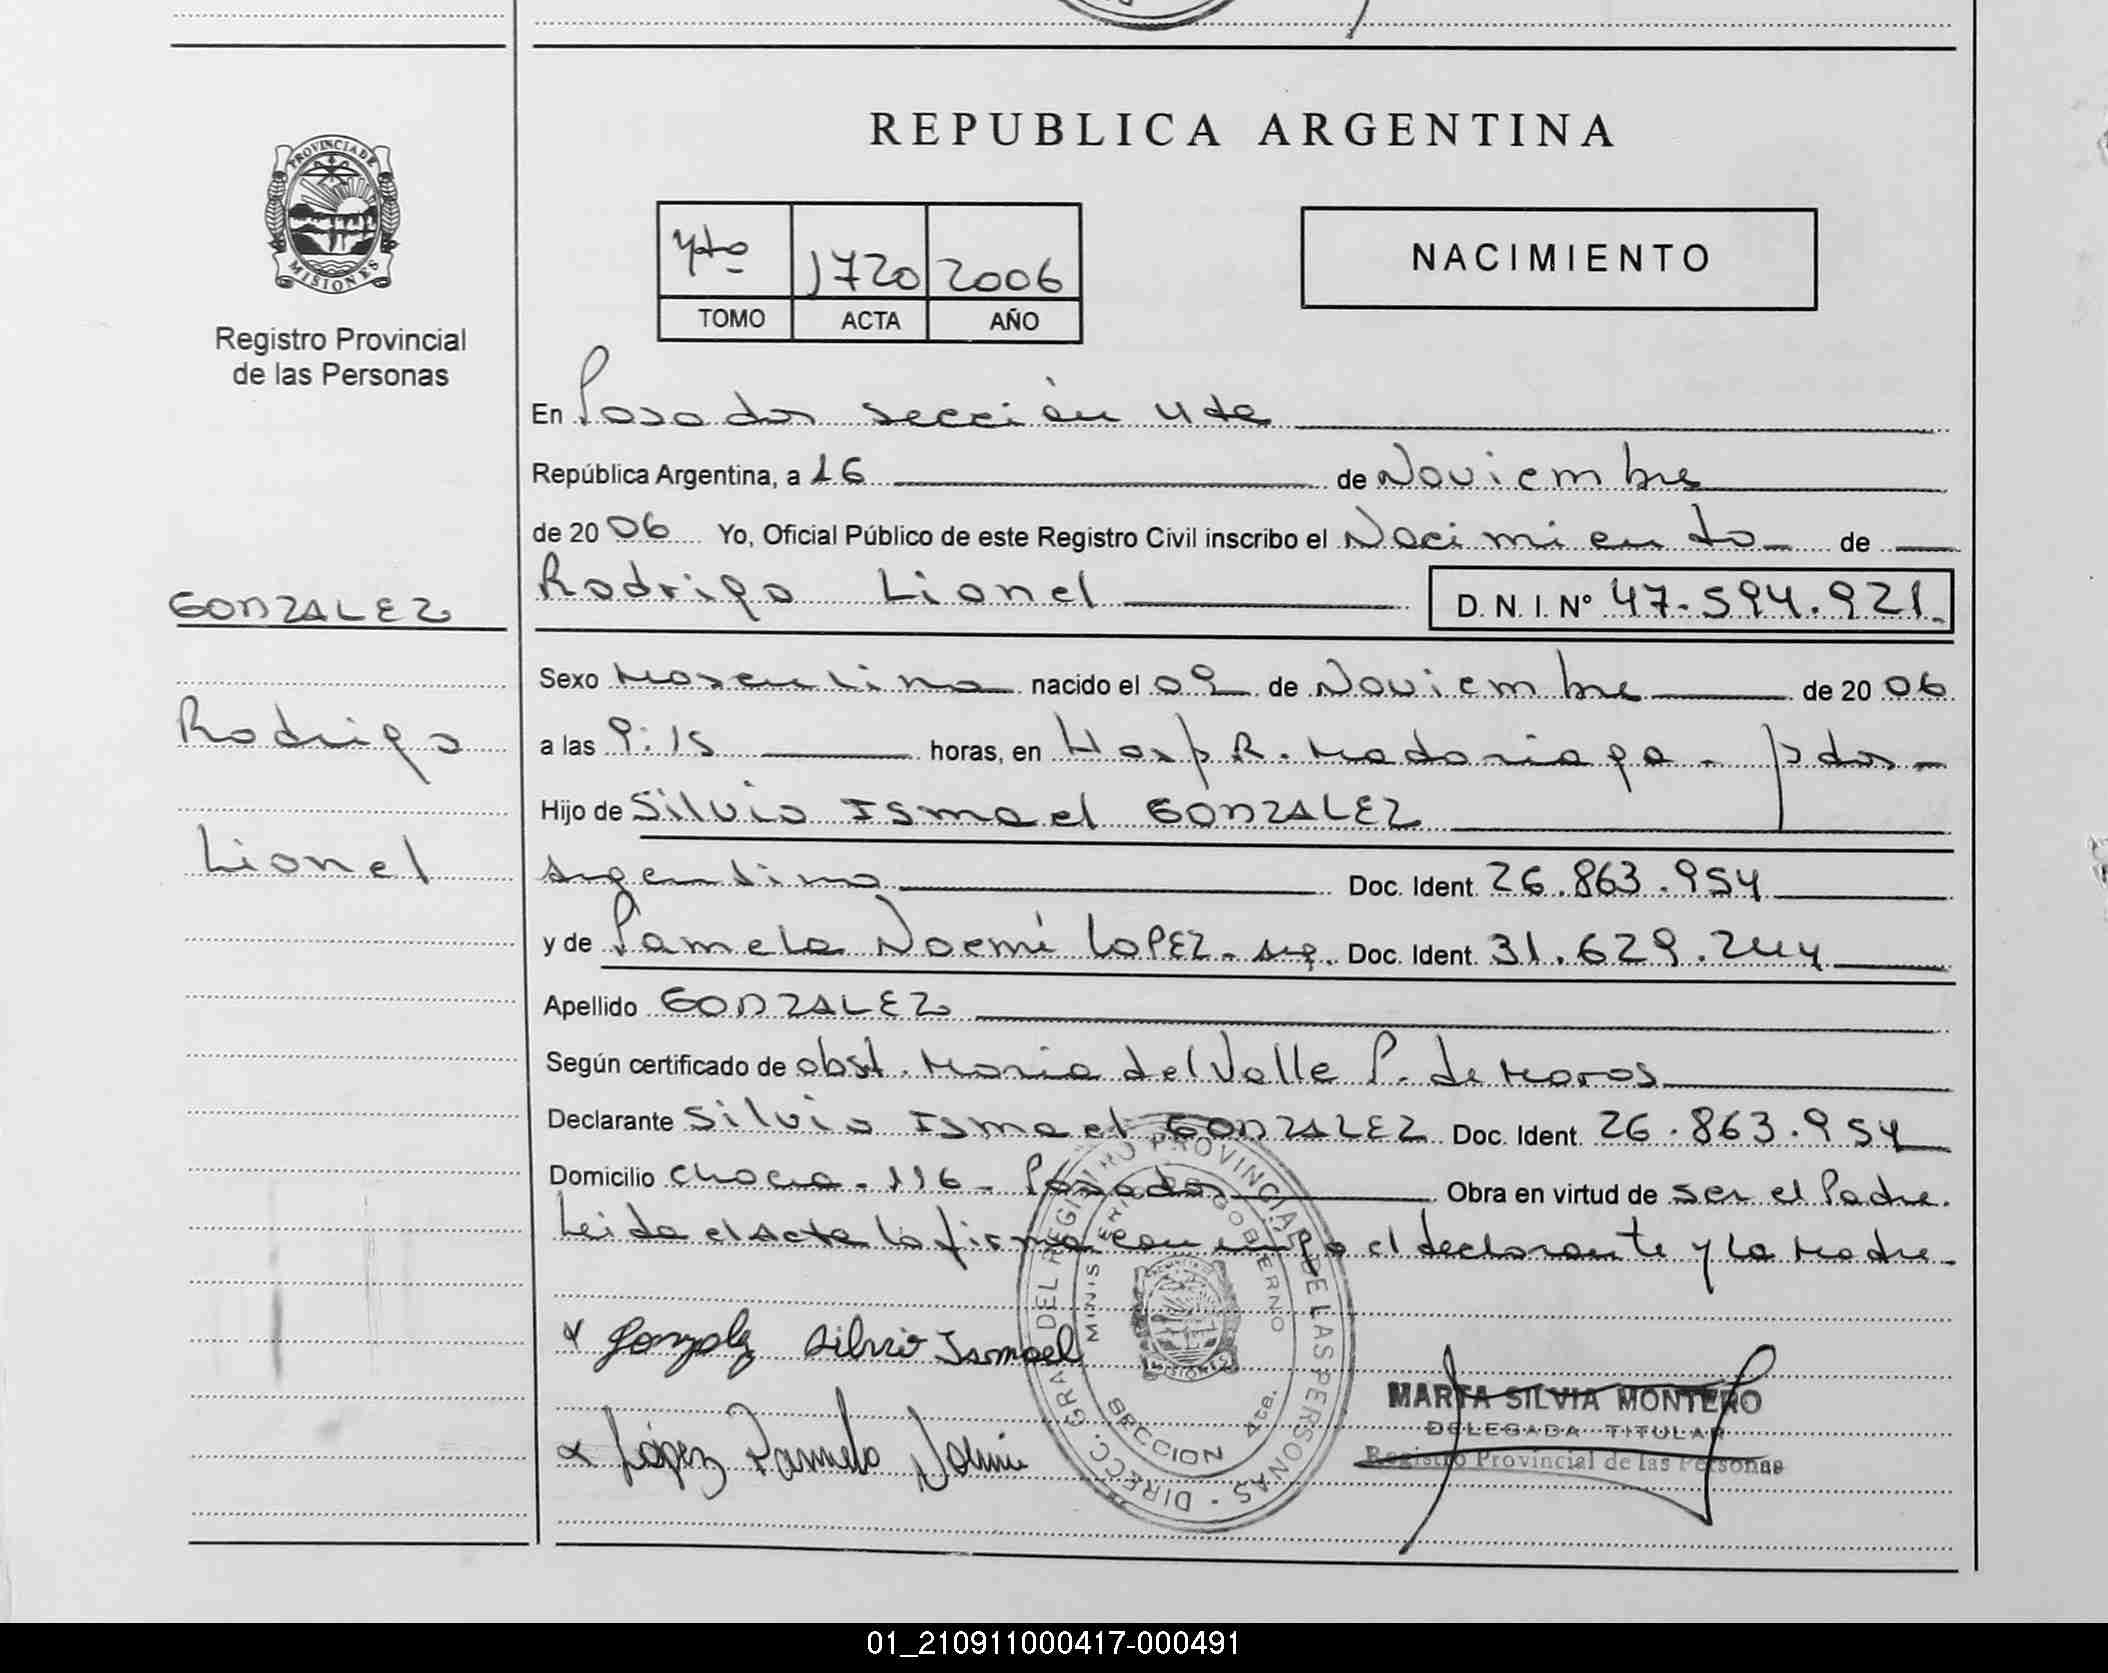 REPUBLICA ARGENTINA
PROVINCIA DE
MISIONES
Registro Provincial
de las Personas
4to 1720 2006
TOMO ACTA AÑO
NACIMIENTO
En Posadas sección 4ta
República Argentina, a 16 de Noviembre
de 20 06 Yo, Oficial Público de este Registro Civil inscribo el Nacimiento de
GONZALEZ
Rodrigo
Lionel
Rodrigo Lionel D. N. I. Nº 47.594.921.
Sexo Masculino nacido el 09 de Noviembre de 20 06
a las 9:15 horas, en Hosp R. Madariaga - pdas -
Hijo de Silvio Ismael GONZALEZ
argentino Doc. Ident. 26.863.954
y de Pamela Noemí LOPEZ - arg. Doc. Ident. 31.629.244
Apellido GONZALEZ
Según certificado de obst. Maria del Valle P. de Maros
Declarante Silvio Ismael GONZALEZ Doc. Ident. 26.863.954
Domicilio Chaco - 116 - Posadas Obra en virtud de ser el Padre.
Leida el acta la firma con migo el declarante y la Madre.
x Gonzalez Silvio Ismael
x López Pamela Noemi
DIRECC. GRAL. DEL REGISTRO PROVINCIAL DE LAS PERSONAS
MINISTERIO GOBIERNO
MISIONES
SECCION 4ta.
MARTA SILVIA MONTERO
DELEGADA TITULAR
Registro Provincial de las Personas
01_210911000417-000491